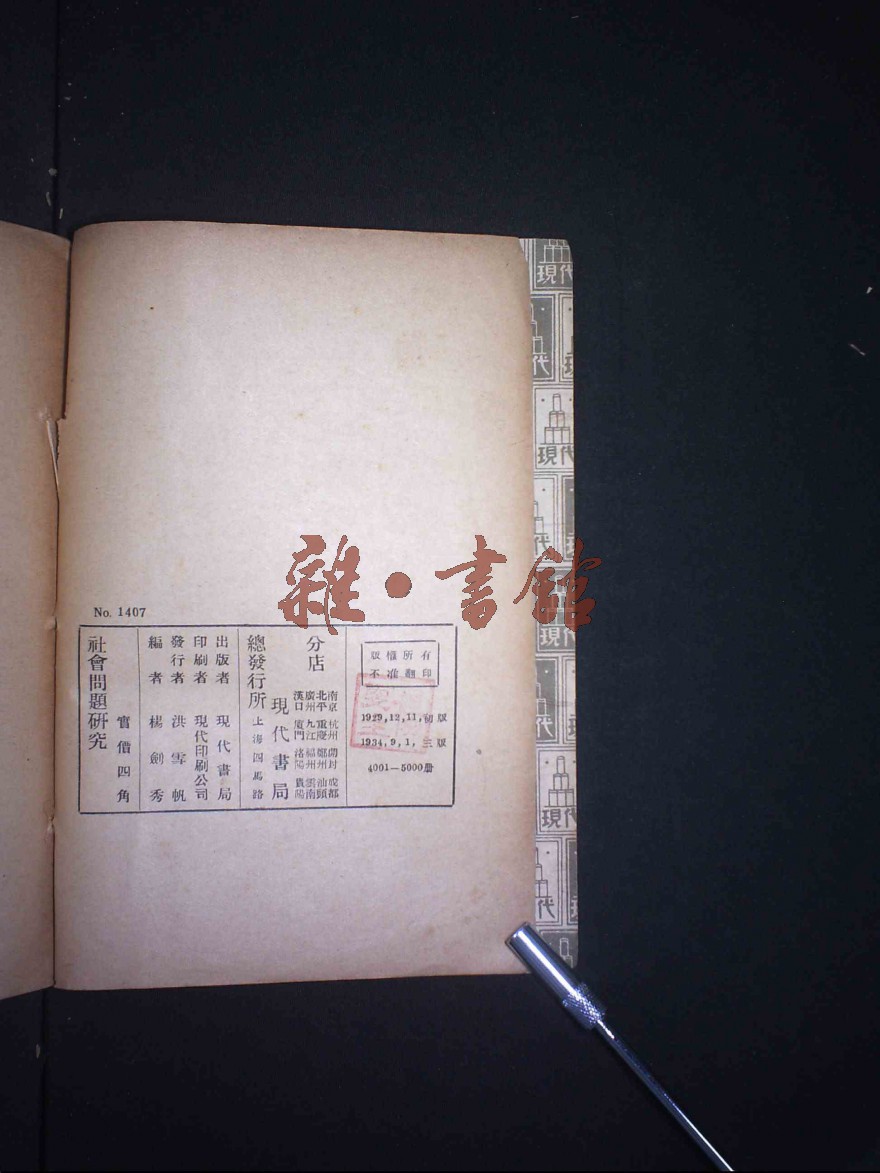 No. 1407
版權所有
不准翻印
1929,12,11,初版
1934,9,1,三版
4001—5000册
分店
南京 杭州 開封 成都
北平 重慶 鄭州 汕頭
廣州 九江 福州 雲南
漢口 廈門 洛陽 貴陽
現代書局
總發行所 上海四馬路
出版者 現代書局
印刷者 現代印刷公司
發行者 洪雪帆
編者 楊劍秀
社會問題研究
實價四角
雜·書館
現代
代
現代
代
現代
現代
代